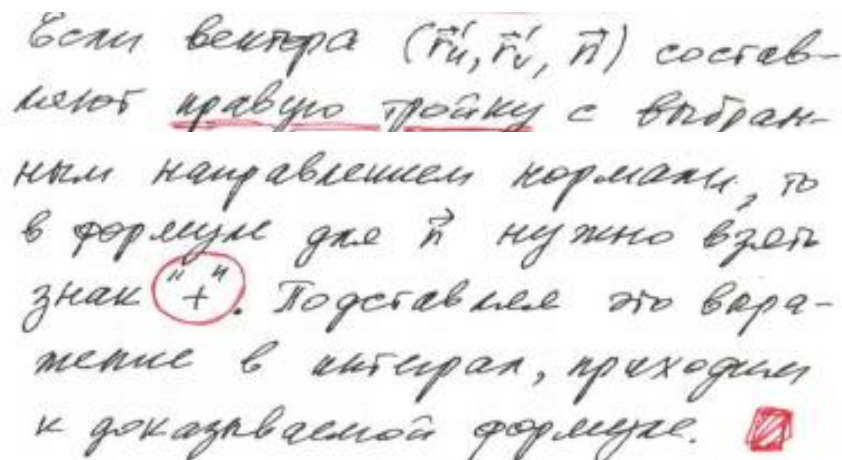 Если вектора (r⃗'u, r⃗'v, n⃗) состав-
ляют правую тройку с выбран-
ным направлением нормали, то
в формуле для n⃗ нужно взять
знак "+". Подставляя это выра-
жение в интеграл, приходим
к доказываемой формуле.